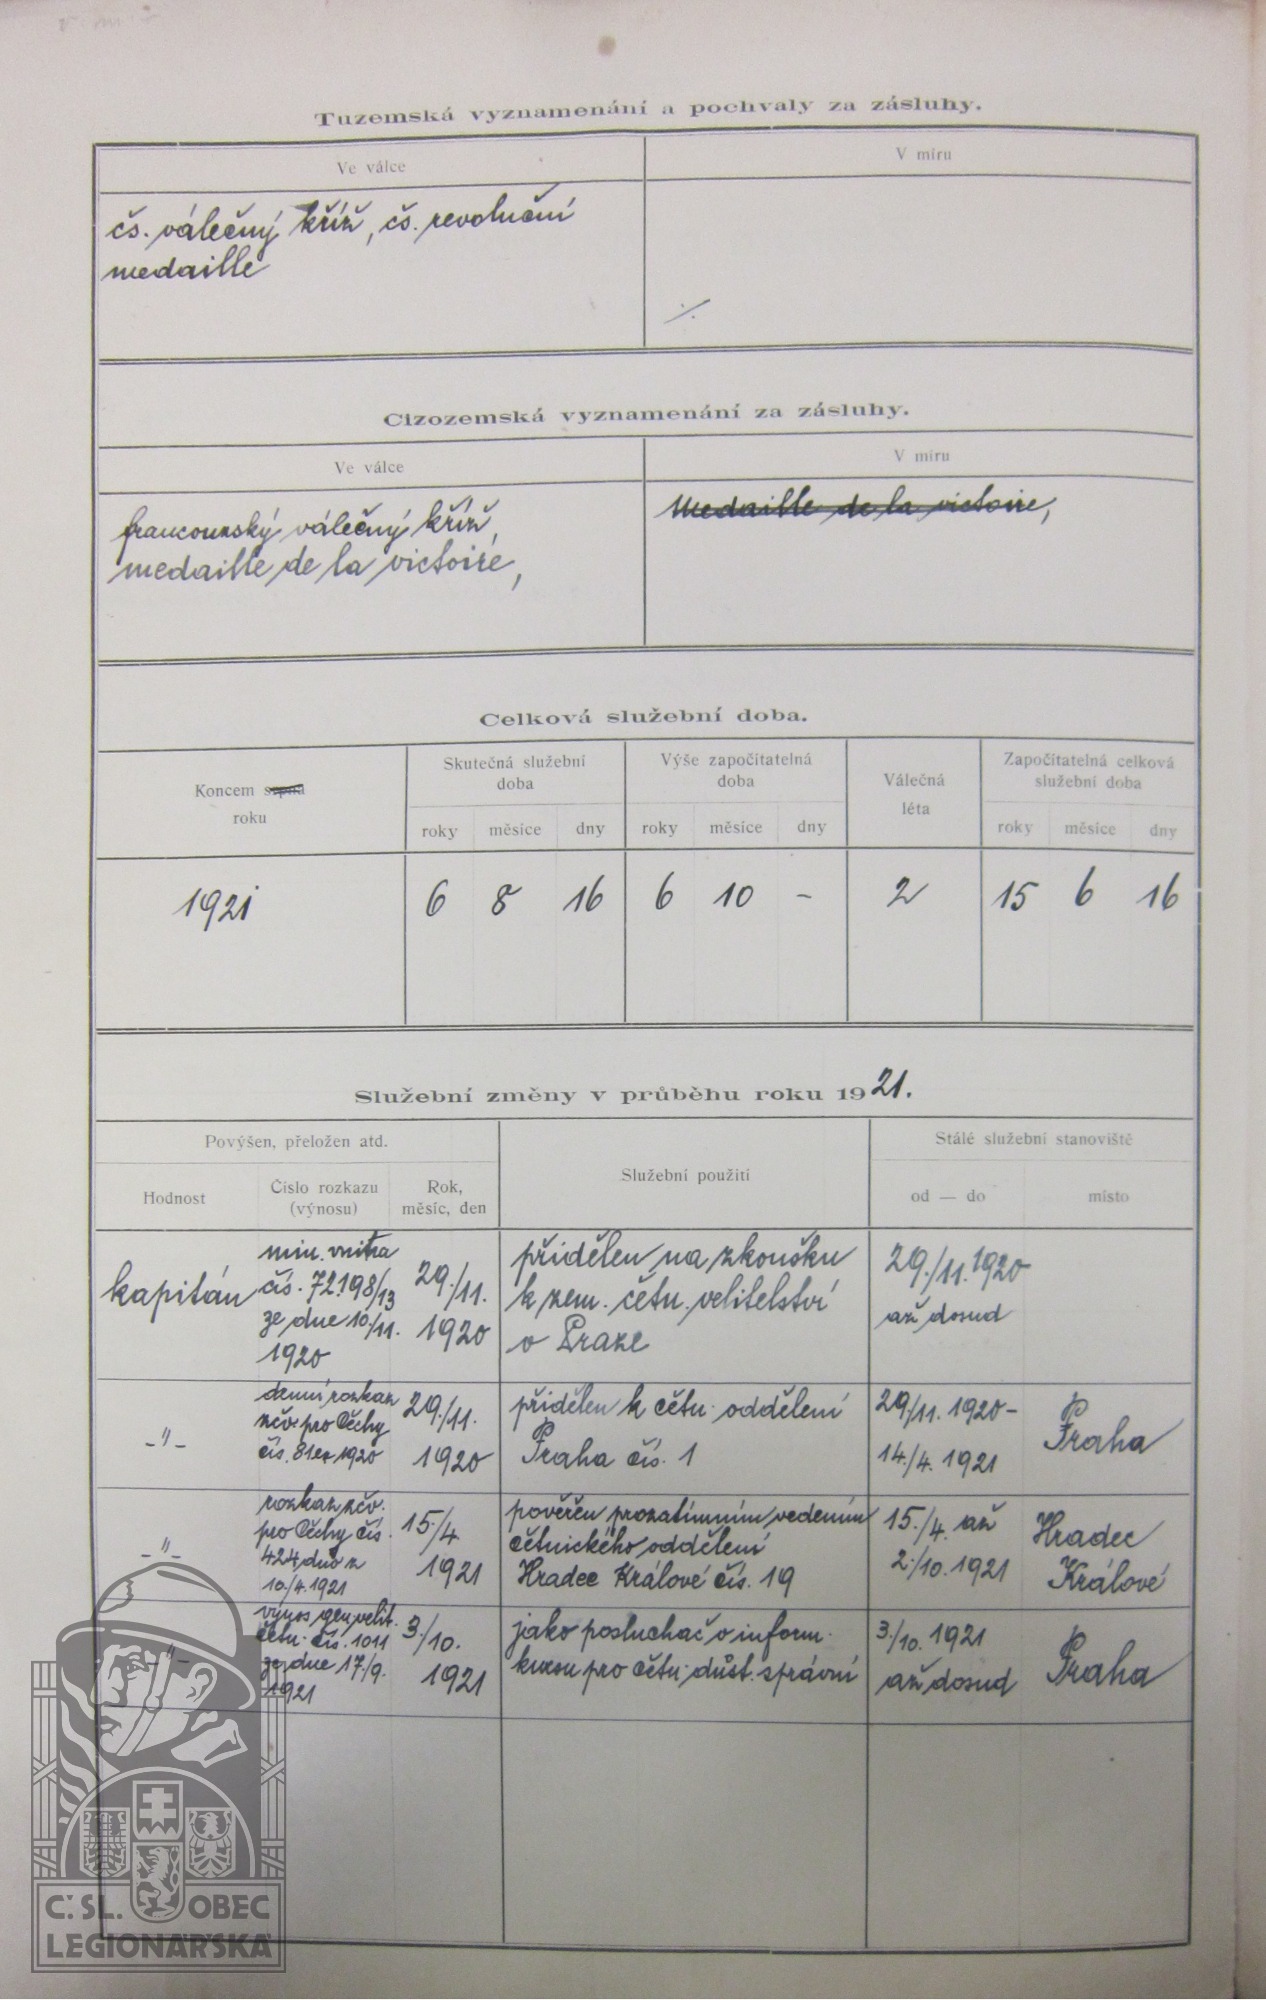 Tuzemská vyznamenání a pochvaly za zásluhy.
Ve válce
V míru
čs. válečný kříž, čs. revoluční
medaille
./.
Cizozemská vyznamenání za zásluhy.
Ve válce
V míru
francouzský válečný kříž,
medaille de la victoire,
Medaille de la victoire,
Celková služební doba.
Koncem srpna
roku
Skutečná služební
doba
Výše započítatelná
doba
Válečná
léta
Započítatelná celková
služební doba
roky měsíce dny roky měsíce dny roky měsíce dny
1921 6 8 16 6 10 - 2 15 6 16
Služební změny v průběhu roku 1921.
Povýšen, přeložen atd.
Služební použití
Stálé služební stanoviště
Hodnost
Číslo rozkazu
(výnosu)
Rok,
měsíc, den
od — do
místo
kapitán
min. vnitra
čís. 72.198/13
ze dne 10./11.
1920
29./11.
1920
přidělen na zkoušku
k zem. četn. velitelství
v Praze
29./11. 1920
až dosud
-"-
denní rozkaz
zčv. pro Čechy
čís. 81 ex 1920
29./11.
1920
přidělen k četn. oddělení
Praha čís. 1
29./11. 1920 -
14./4. 1921
Praha
-"-
rozkaz zčv.
pro Čechy čís.
424 dův z
10./4. 1921
15./4
1921
pověřen prozatímním vedením
četnického oddělení
Hradec Králové čís. 19
15./4. až
2./10. 1921
Hradec
Králové
-"-
výnos gen. velit.
četn. čís. 1011
ze dne 17./9.
1921
3./10.
1921
jako posluchač v inform.
kursu pro četn. důst. správní
3./10. 1921
až dosud
Praha
Č. SL. OBEC
LEGIONÁŘSKÁ